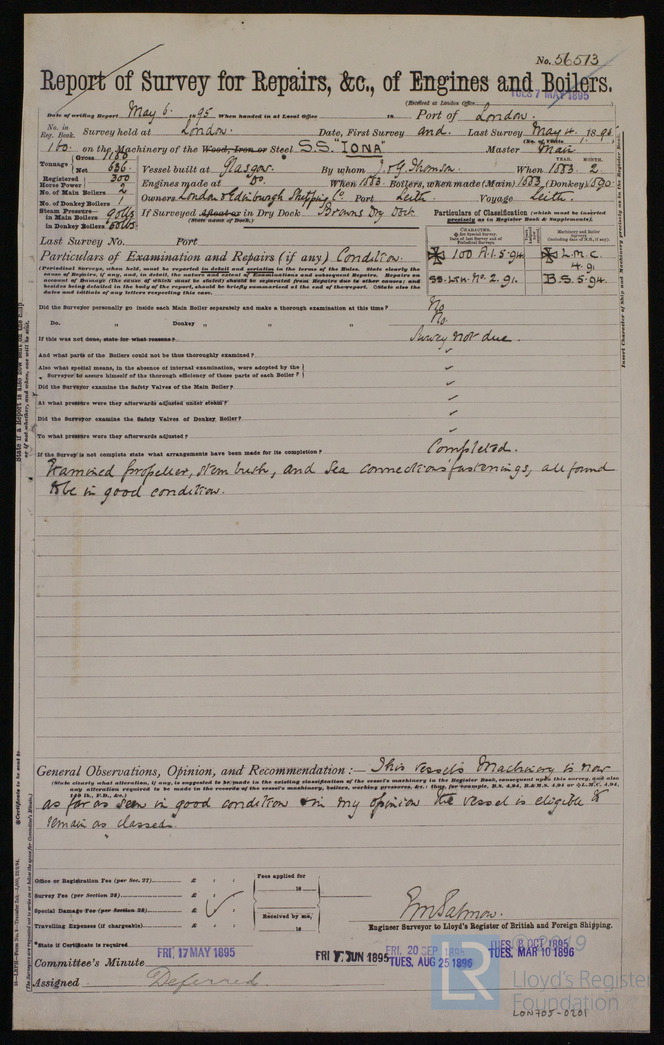 No. 56513
Report of Survey for Repairs, &c., of Engines and Boilers.
TUES 7 MAY 1895
(Received at London Office
Date of writing Report May 6. 1895 When handed in at Local Office 18 Port of London.
No. in Reg. Book. Survey held at London. Date, First Survey and. Last Survey May 4. 1895
(No. of Visits 1.)
160 on the Machinery of the Wood, Iron or Steel S.S. "IONA" Master Mair
Tonnage Gross 1180
Net 636 Vessel built at Glasgow. By whom J. & G. Thomson. When YEAR. 1883 MONTH. 2
Registered Horse Power 300 Engines made at Do. When 1883 Boilers, when made (Main) 1883 (Donkey) 1890
No. of Main Boilers 2
No. of Donkey Boilers 1 Owners London & Edinburgh Shipping Co. Port Leith. Voyage Leith.
Steam Pressure—
in Main Boilers 90lbs If Surveyed Afloat or in Dry Dock Browns Dry Dock
in Donkey Boilers 60lbs (State name of Dock.)
Particulars of Classification (which must be inserted precisely as in Register Book & Supplements).
Last Survey No. Port
CHARACTER.
100 A.1. 5.94
SS. Lth. No. 2. 91
Machinery and Boiler Surveys (including date of N.B., if any).
L.M.C. 4.91
B.S. 5.94
Particulars of Examination and Repairs (if any) Condition.
(Periodical Surveys, when held, must be reported in detail and seriatim in the terms of the Rules. State clearly the
cause of Repairs, if any, and, in detail, the nature and extent of Examinations and subsequent Repairs. Repairs on
account of Damage (the cause of which must be stated) should be separated from Repairs due to other causes; and
besides being detailed in the body of the report, should be briefly summarised at the end of the report. State also the
dates and initials of any letters respecting this case.
Did the Surveyor personally go inside each Main Boiler separately and make a thorough examination at this time? No
Do. " Donkey " " " " ? No.
If this was not done, state for what reasons? Survey not due.
And what parts of the Boilers could not be thus thoroughly examined?
Also what special means, in the absence of internal examination, were adopted by the
Surveyor to assure himself of the thorough efficiency of those parts of each Boiler?
Did the Surveyor examine the Safety Valves of the Main Boiler?
At what pressure were they afterwards adjusted under steam?
Did the Surveyor examine the Safety Valves of Donkey Boiler?
To what pressure were they afterwards adjusted?
If the Survey is not complete state what arrangements have been made for its completion? Completed.
Examined propeller, stern bush, and sea connections fastenings, all found
to be in good condition.
General Observations, Opinion, and Recommendation:— This vessel's Machinery is now
(State clearly what alteration, if any, is suggested to be made in the existing classification of the vessel's machinery in the Register Book, consequent upon this survey, and also
any alteration required to be made in the records of the vessel's machinery, boilers, working pressures, &c.: thus, for example, B.S. 4.94, B.&M.S. 4.94, or L.M.C. 4.94,
as far as seen in good condition & in my opinion the vessel is eligible to
remain as classed.
Office or Registration Fee (per Sec. 27) £
Survey Fee (per Section 28) £
Special Damage Fee (per Section 28) £
Travelling Expenses (if chargeable) £
Fees applied for
18
Received by me,
18
Engineer Surveyor to Lloyd's Register of British and Foreign Shipping.
State if Certificate is required
Committee's Minute
FRI. 17 MAY 1895
FRI 7. JUN 1895
FRI. 20 SEP 1895
TUES. 8 OCT 1895
TUES. AUG 25 1896
TUES. MAR 10 1896
Assigned Deferred.
© 2019
LR
Lloyd's Register
Foundation
LON705-0201